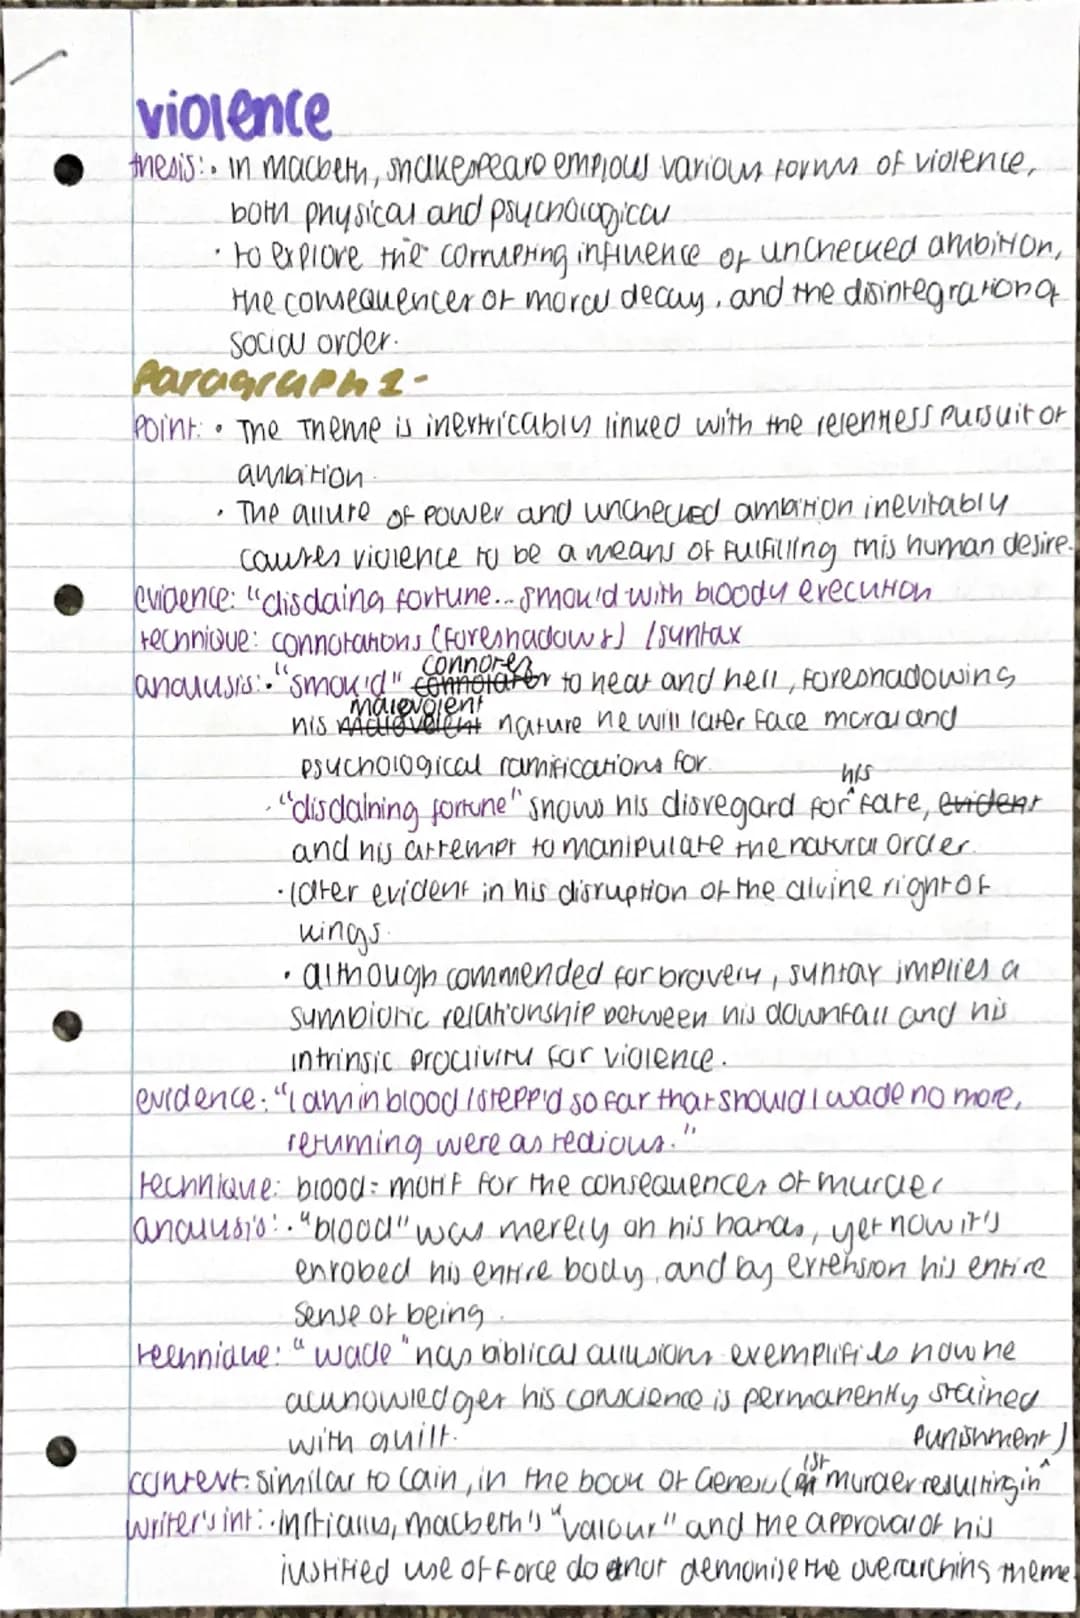 violence
thesis: • in macbeth, shakespeare employs various forms of violence,
both physical and psychological
• to explore the corrupting influence of unchecked ambition,
the consequences of moral decay, and the disintegration of
social order.
Paragraph 1-
Point: • The Theme is inextricably linked with the relentless pursuit of
ambition.
• The allure of power and unchecked ambition inevitably
causes violence to be a means of fulfilling this human desire.
evidence: "disdaing fortune... smok'd with bloody execution
technique: connotations (foreshadows) / syntax
connotes
analysis: • "smok'd" connotates to heat and hell, foreshadowing
malevolent
his nature he will later face moral and
psychological ramifications for
his
• "disdaining fortune" shows his disregard for ^ fate, evident
and his attempt to manipulate the natural order.
• later evident in his disruption of the divine right of
kings.
• although commended for bravery, syntax implies a
symbiotic relationship between his downfall and his
intrinsic proclivity for violence.
evidence: "I am in blood / stepp'd so far that should I wade no more,
returning were as tedious."
technique: blood = motif for the consequences of murder
analysis: • "blood" was merely on his hands, yet now it's
enrobed his entire body, and by extension his entire
sense of being.
technique: "wade" has biblical allusions exemplifies how he
acknowledges his conscience is permanently stained
with guilt.
punishment)
1st ^
context: similar to Cain, in the book of Genesis ( murder resulting in
writer's int: • initially, macbeth's "valour" and the approval of his
justified use of force do not demonise the overarching theme